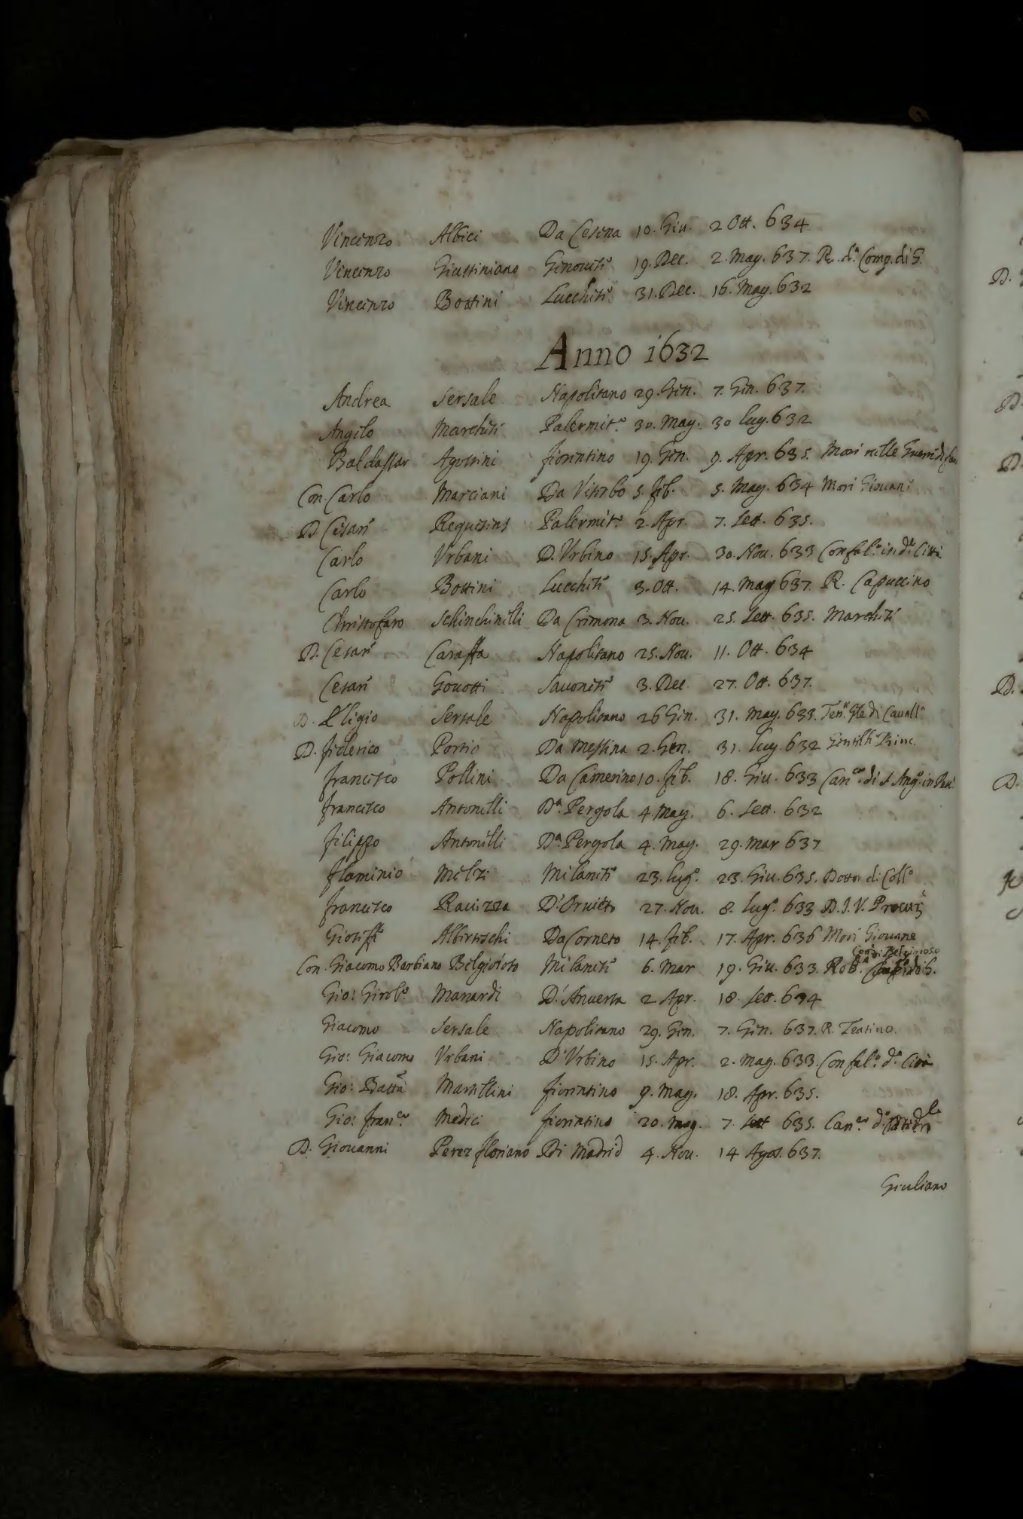 Vincenzo Albici Da Cesena 10. Giu. 2 Ott. 634
Vincenzo Giustiniano Genouese 19. Dec. 2. Mag. 637. R. d.ª Comp. di G.
Vincenzo Bottini Lucchese 31. Dec. 16. Mag. 632
Anno 1632
Andrea Sersale Napolitano 29. Gen. 7. Gen. 637.
Angelo Marchesi Palermit.º 30. Mag. 30 lug. 632
Baldassar Agostini fiorentino 19. Gen. 9. Apr. 635. Morì nelle
Con. Carlo Marciani Da Viterbo 5. feb. 5. Mag. 634 Morì Giouane
D. Cesare Requisens Palermit.º 2. Apr. 7. Sett. 635.
Carlo Vrbani D'Vrbino 15. Apr. 30. Nou. 633 Confal.e in d.ª Città
Carlo Bottini Lucchese 3. Ott. 14. Mag 637 R. Capuccino
Christofaro Schinchinelli Da Cremona 3. Nou. 25. Sett. 635. Marchese
D. Cesare Caraffa Napolitano 25. Nou. 11. Ott. 634
Cesare Gouotti Sauonese 3. Dec 27. Ott. 637.
D. Eligio Sersale Napolitano 26 Gen. 31. Mag. 633. Ten.e Gle di Cauall.ª
D. federico Porzio Da Messina 2. Gen. 31. lug. 632
francesco Pollini Da Camerino 10. feb. 18. Giu. 633 Can.co di S. Ang.º in
francesco Antonelli D.ª Pergola 4 Mag. 6. Sett. 632
filippo Antonelli D.ª Pergola 4. Mag. 29. Mar 637
flaminio Melzi Milanese 23. lug.º 23. Giu. 635. Dottor di Coll.º
francesco Rauizza D'Oruieto 27. Nou. 8. lug.º 633 D. I. V.
Gioseffe Albertoschi Da Corneto 14. feb. 17. Apr. 636 Morì Giouane
Con. Giacomo Barbiano Belgioioso Milanese 6. Mar 19. Giu. 633.
Gio: Girol.º Manardi D'Anuersa 2 Apr. 18. Sett. 634
Giacomo Sersale Napolitano 29. Gen. 7. Gen. 637. R. Teatino
Gio: Giacomo Vrbani D'Vrbino 15. Apr. 2. Mag. 633 Confal.e d.ª Città
Gio: Batta Martellini fiorentino 9. Mag. 18. Apr. 635.
Gio: fran.co Medici fiorentino 20. Mag. 7. Sett 635. Can.co
D. Giouanni Perez floriano Di Madrid 4. Nou. 14 Agos. 637.
Giuliano